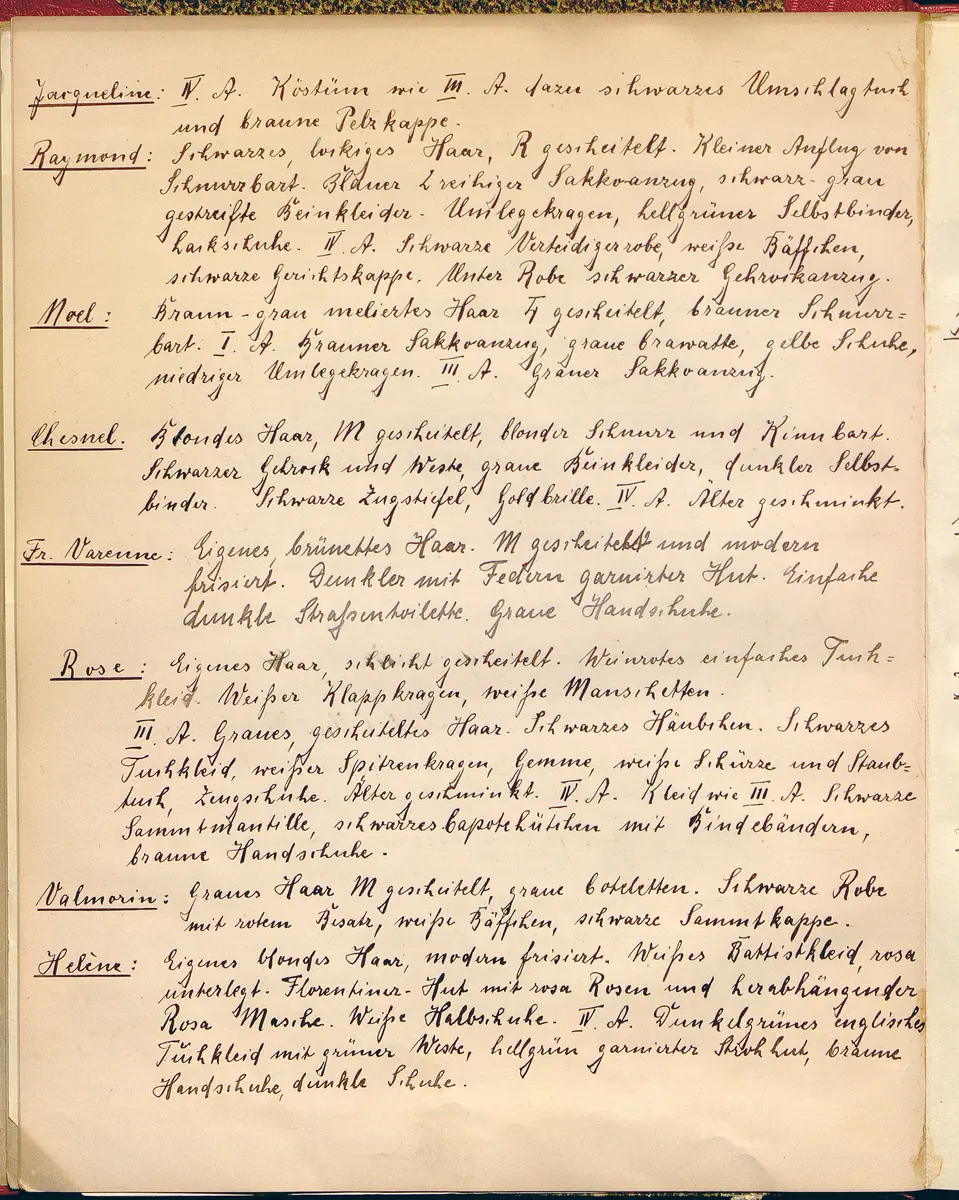 Jacqueline: IV. A. Kostüm wie III. A. dazu schwarzes Umschlagtuch
und braune Pelzkappe.
Raymond: Schwarzes, lockiges Haar, R gescheitelt. Kleiner Anflug von
Schnurrbart. Blauer 2 reihiger Sakkoanzug, schwarz-grau
gestreifte Beinkleider. Umlegekragen, hellgrüner Selbstbinder,
Lackschuhe. IV. A. Schwarze Verteidigerrobe, weiße Bäffchen,
schwarze Gerichtskappe. Unter Robe schwarzer Gehrockanzug.
Noel: Braun-grau meliertes Haar L gescheitelt, brauner Schnurr=
bart. I. A. Brauner Sakkoanzug, graue Crawatte, gelbe Schuhe,
niedriger Umlegekragen. III. A. Grauer Sakkoanzug.
Chesnel. Blondes Haar, M gescheitelt, blonder Schnurr und Kinnbart.
Schwarzer Gehrock und Weste, graue Beinkleider, dunkler Selbst-
binder. Schwarze Zugstiefel, Goldbrille. IV. A. Älter geschminkt.
Fr. Varenne: Eigenes, brünettes Haar. M gescheitelt und modern
frisiert. Dunkler mit Federn garnirter Hut. Einfache
dunkle Straßentoilette. Graue Handschuhe.
Rose: Eigenes Haar, schlicht gescheitelt. Weinrotes einfaches Tuch=
kleid. Weißer Klappkragen, weiße Manschetten.
III. A. Graues, gescheiteltes Haar. Schwarzes Häubchen. Schwarzes
Tuchkleid, weißer Spitzenkragen, Gemme, weiße Schürze und Staub=
tuch, Zeugschuhe. Älter geschminkt. IV. A. Kleid wie III. A. Schwarze
Sammtmantille, schwarzes Capotehütchen mit Bindebändern,
braune Handschuhe.
Valmorin: Graues Haar M gescheitelt, graue Coteletten. Schwarze Robe
mit rotem Besatz, weiße Bäffchen, schwarze Sammtkappe.
Helène: Eigenes blondes Haar, modern frisiert. Weißes Battistkleid, rosa
unterlegt. Florentiner-Hut mit rosa Rosen und herabhängender
Rosa Masche. Weiße Halbschuhe. IV. A. Dunkelgrünes englisches
Tuchkleid mit grüner Weste, hellgrün garnierter Strohhut, braune
Handschuhe, dunkle Schuhe.